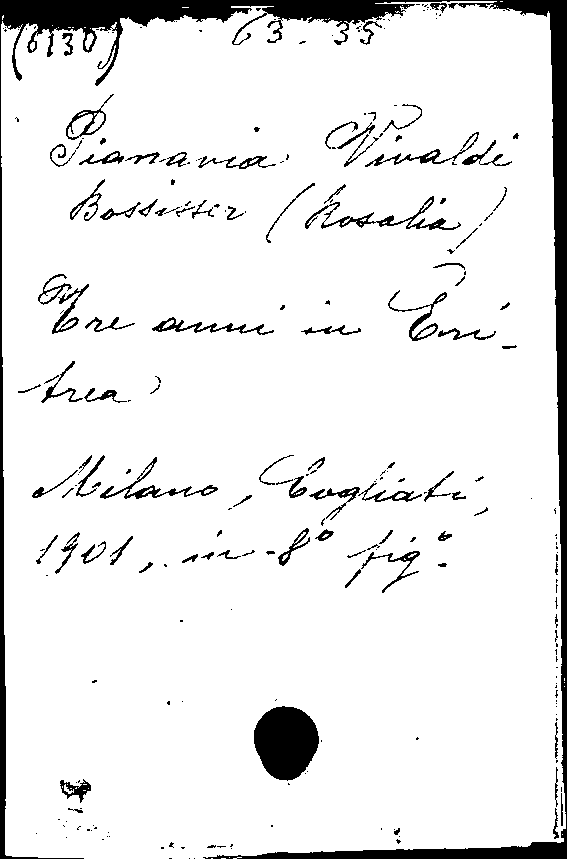 (6130) 63.35
Pianavia Vivaldi
Bossisser (Rosalia)
Tre anni in Eri-
trea
Milano, Cogliati,
1901, in-8° fig°.